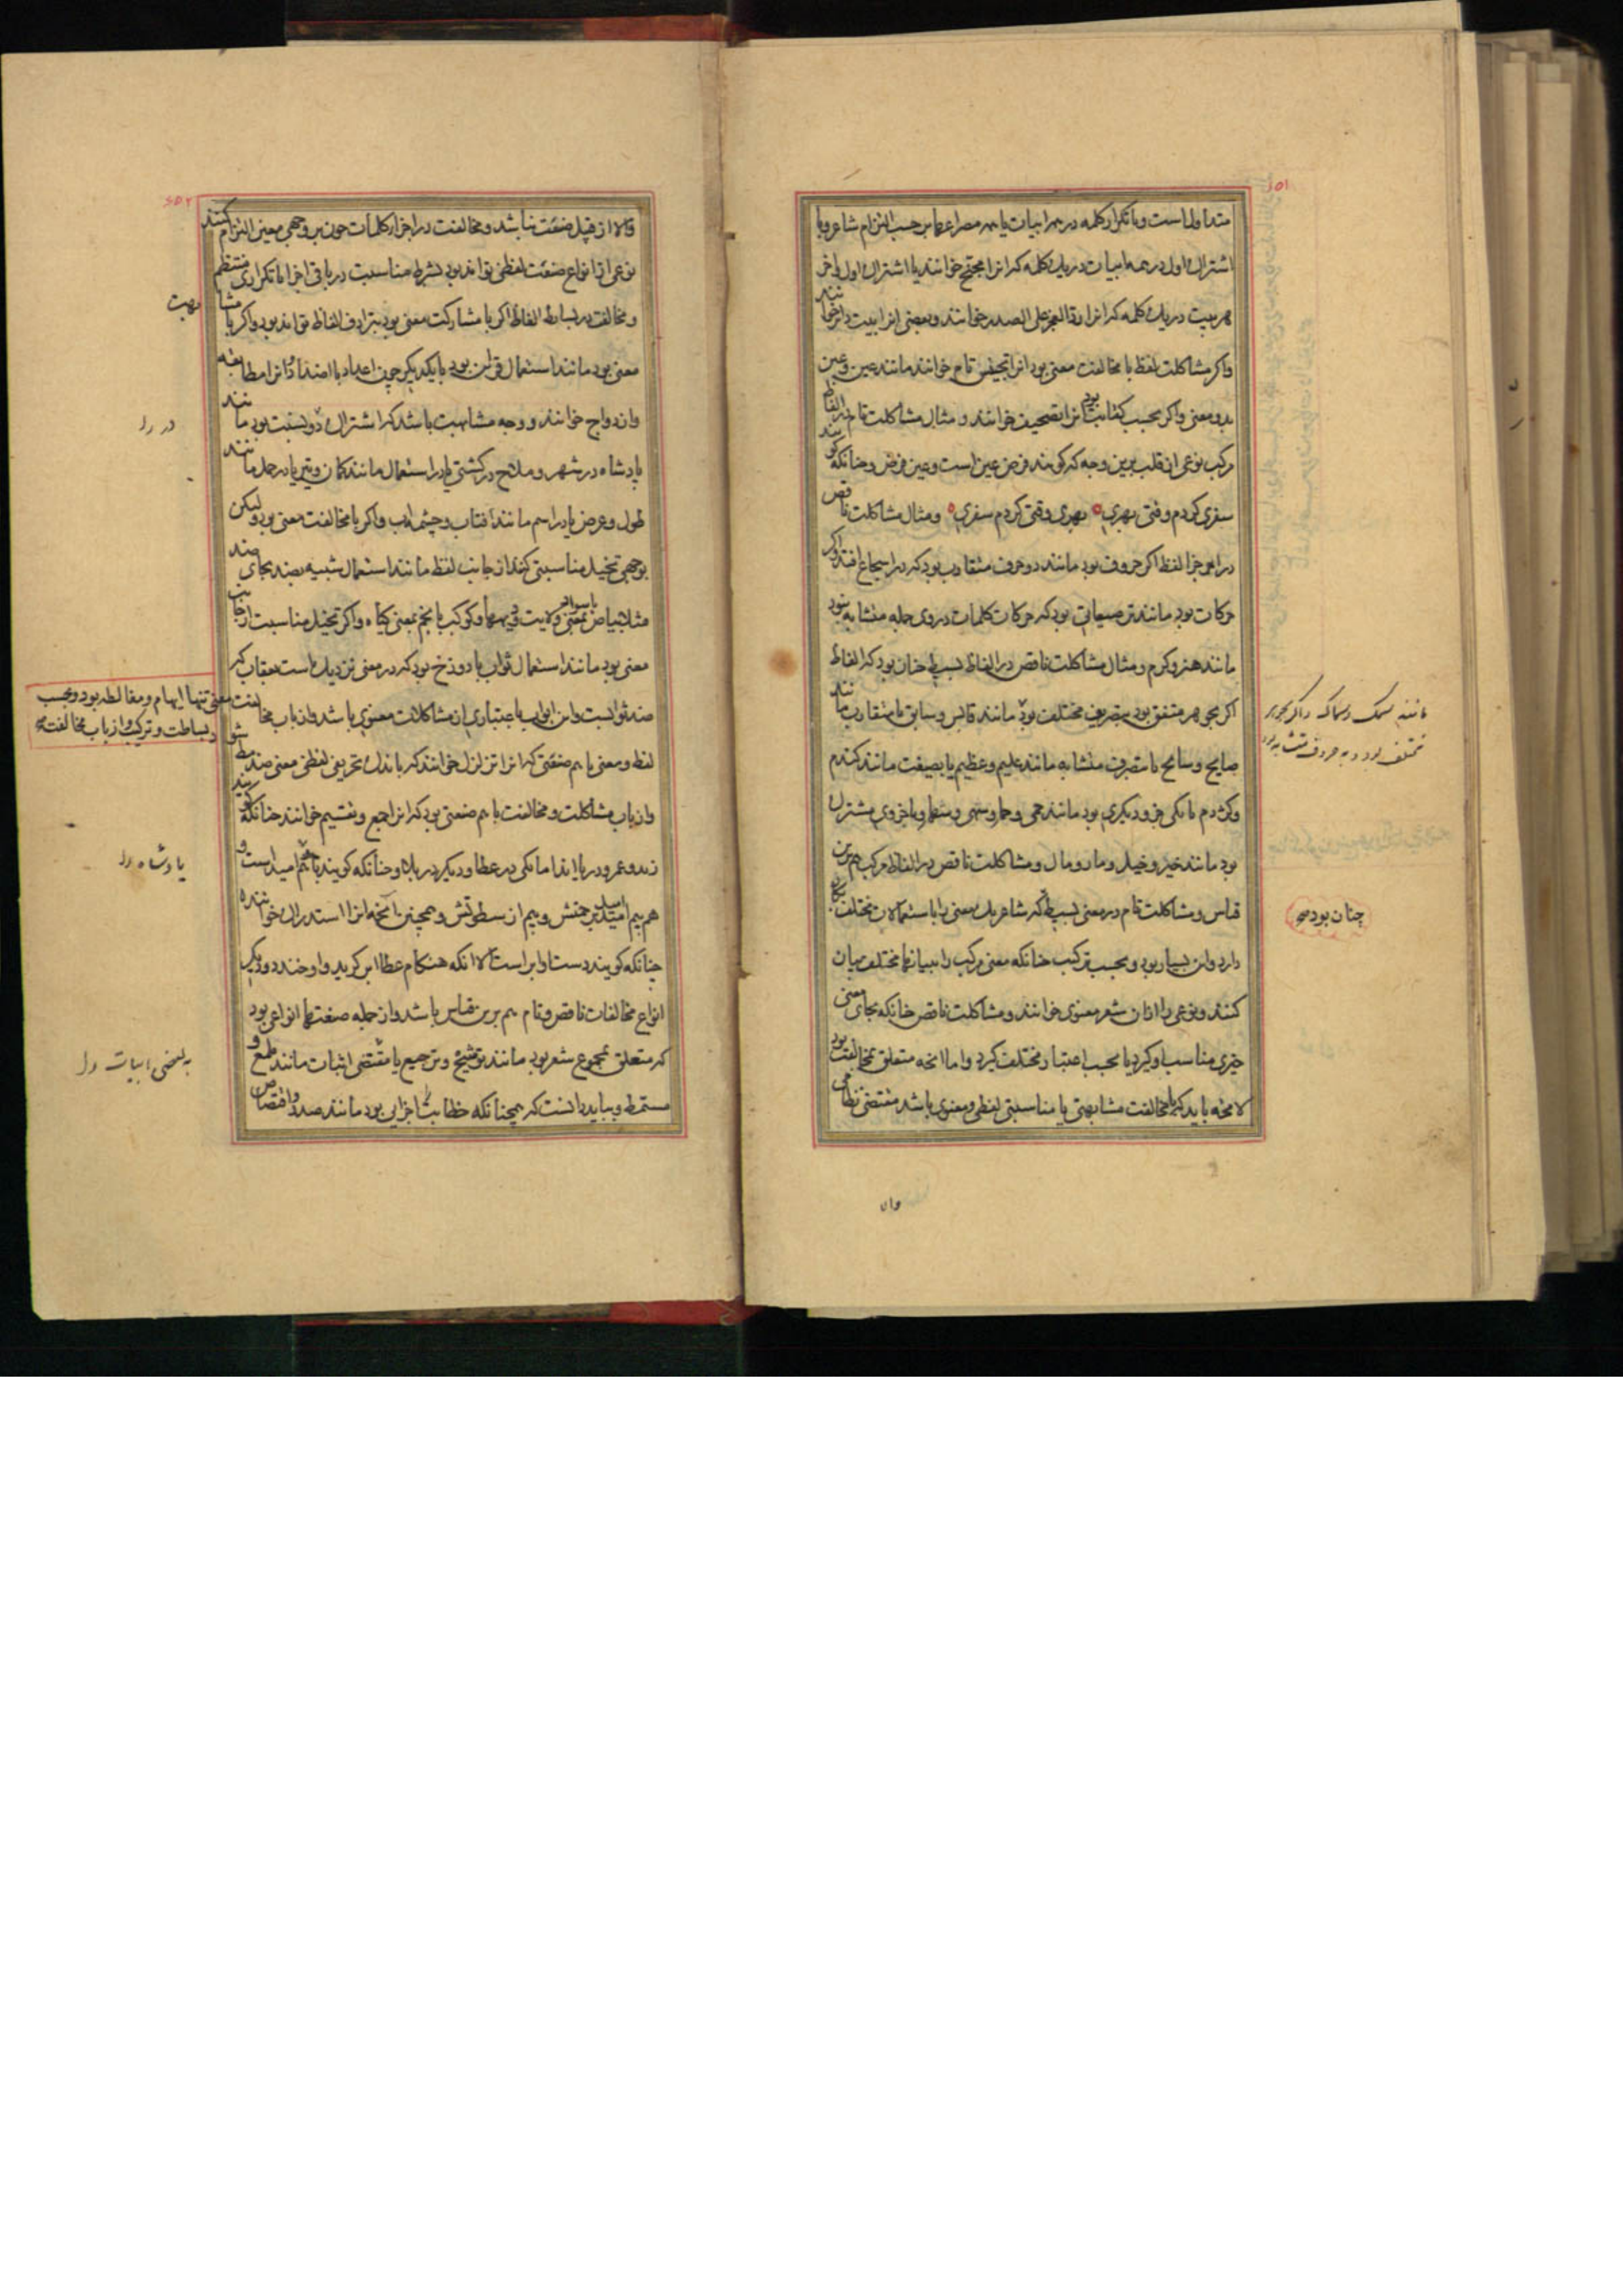 متداولست و با تکرار کلمه در همه ابیات یا همه مصراعها بر حسب التزام شاعر و یا
اشتراک اول در همه ابیات در یک کلمه که انرا محجج خوانند یا اشتراک اول و اخر
هر بیت در یک کلمه که انرا رد العجز علی الصدر خوانند و بعضی انرا بیت دایر خوانند
واکر مشاکلت لفظ با مخالفت معنی بود انرا تجنیس تام خوانند مانند عین و عین
بدو معنی واکر بحسب کتابت بود انرا تصحیف خوانند و مثال مشاکلت تام در الفاظ
مرکب نوعی از قلب برین وجه که کویند فرض عین است و عین فرض و چنانکه کویند
سفری کردم وقتی بهری ه بهری وقتی کردم سفری ه و مثال مشاکلت ناقص
در اجزا لفظ اکر حروف بود مانند دو حرف متقارب بود که در اسجاع افتد و اکر
حرکات بود مانند ترصیعاتی بود که حرکات کلمات در وی جمله متشابه بود
مانند هنر و کرم و مثال مشاکلت ناقص در الفاظ بسیط چنان بود که الفاظ
اکر بجوهر متفق بود بتصریف مختلف بود مانند قایس و سابق یا متقارب مانند
صایح و سایح یا متصرف متشابه مانند علیم و عظیم یا بصیغت مانند کندم
وکژدم یا یکی جزو دیکری بود مانند حمی و حما و سهی و سها و یا بجزوی مشترک
بود مانند خیر و خیل و مار و مال و مشاکلت ناقص در الفاظ مرکب هم برین
قیاس و مشاکلت تام در معنی بسیط که شاعر یک معنی را باستعمالات مختلف بکار
دارد و این بسیار بود و بحسب ترکیب چنانکه معنی مرکب را بعبارتها مختلف بیان
کنند و نوعی را ازان شعر معنوی خوانند و مشاکلت ناقص چنانکه بجای معنی
چیزی مناسب او کیرد یا بحسب اعتبار مختلف کیرد و اما انچه متعلق بمخالفت بود
لا محاله باید که با مخالفت مشابهتی یا مناسبتی لفظی و معنوی باشد مقتضی نظامی
وان
مانند سمک و سماک و اکر بجوهر
مختلف بود و به حروف متشابه بود
چنان بود که
والا از قبیل صنعت نباشد و مخالفت در اجزا کلمات چون بر وجهی معین التزام کنند
نوعی از انواع صنعت لفظی تواند بود بشرط مناسبت در باقی اجزا یا تکراری منتظم
و مخالفت در بسایط الفاظ اکر با مشارکت معنی بود بترادف الفاظ تواند بود واکر با مشا
بهت
معنی بود مانند استعمال قراین بود با یکدیکر چون اعداد یا اضداد و انرا مطابقه
وازدواج خوانند و وجه مشابهت باشد که اشتراک دو نسبت بود مانند
در را
پادشاه در شهر و ملاح در کشتی یا در استعمال مانند کمان و تیر یا در حمل مانند
طول و عرض یا در اسم مانند افتاب و چشمه اب واکر با مخالفت معنی بود ولیکن
بوجهی تخییل مناسبتی کند از جانب لفظ مانند استعمال شبیه بضد بجای ضد
مثلا بیاض بمعنی ولایت با سواد و کوکب با نجم بمعنی کیاه واکر تخییل مناسبت از جانب
معنی بود مانند استعمال ثواب با دوزخ بود که در معنی نزدیک است بعقاب که
ضد ثوابست و این ابواب باعتباری از مشاکلات معنوی باشد و از باب مخا
لفت معنی تنها ایهام و مغالطه بود و بحسب
بساطت و ترکیب و از باب مخالفت
لفظ و معنی باهم صنعتی که انرا تزلزل خوانند که باندک تحریفی لفظی معنی ضد
واز باب مشاکلت و مخالفت باهم صنعتی بود که انرا جمع و تقسیم خوانند چنانکه کویند
زید و عمرو دریا اند اما یکی در عطا و دیکر در بلا و چنانکه کویند
پادشاه را
هم بیم امید بخشش و بیم از سطوتش و همچنین انچه انرا استدراک خوانند
چنانکه کویند دست او ابر است الا انکه هنکام عطا ابر کرید و او خندد و دیکر
انواع مخالفات ناقص و تام هم برین قیاس باشد و از جمله صنعتها انواعی بود
که متعلق بمجموع شعر بود مانند توشیح و ترجیع یا مقتضی ابیات مانند ملمع و
به بعضی ابیات را
مسمط و بباید دانست که همچنانکه خطابت را اجزایی بود مانند صدر و اقتصاص